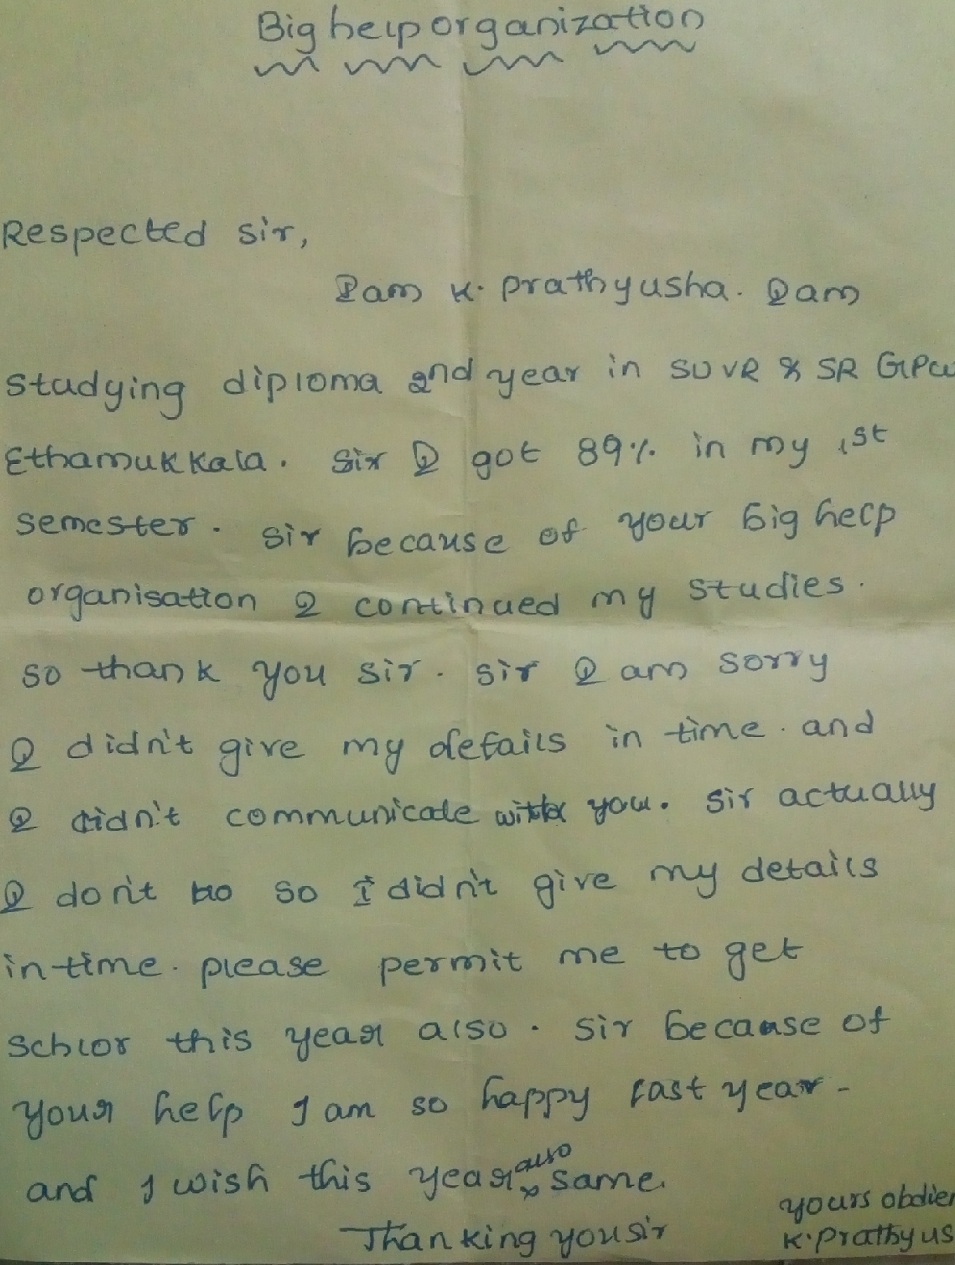 Big help organization
Respected sir,
I am K. Prathyusha. I am
studying diploma 2nd year in SUVR & SR GPW
Ethamukkala. Sir I got 89% in my 1st
semester. Sir because of your big help
organisation I continued my studies.
so thank you sir. sir I am sorry
I didn't give my details in time. and
I didn't communicate with you. Sir actually
I don't no so I didn't give my details
in time. please permit me to get
schlor this year also. sir because of
your help I am so happy last year.
and I wish this year also same.
Thanking you sir
yours obdien
K. Prathyus